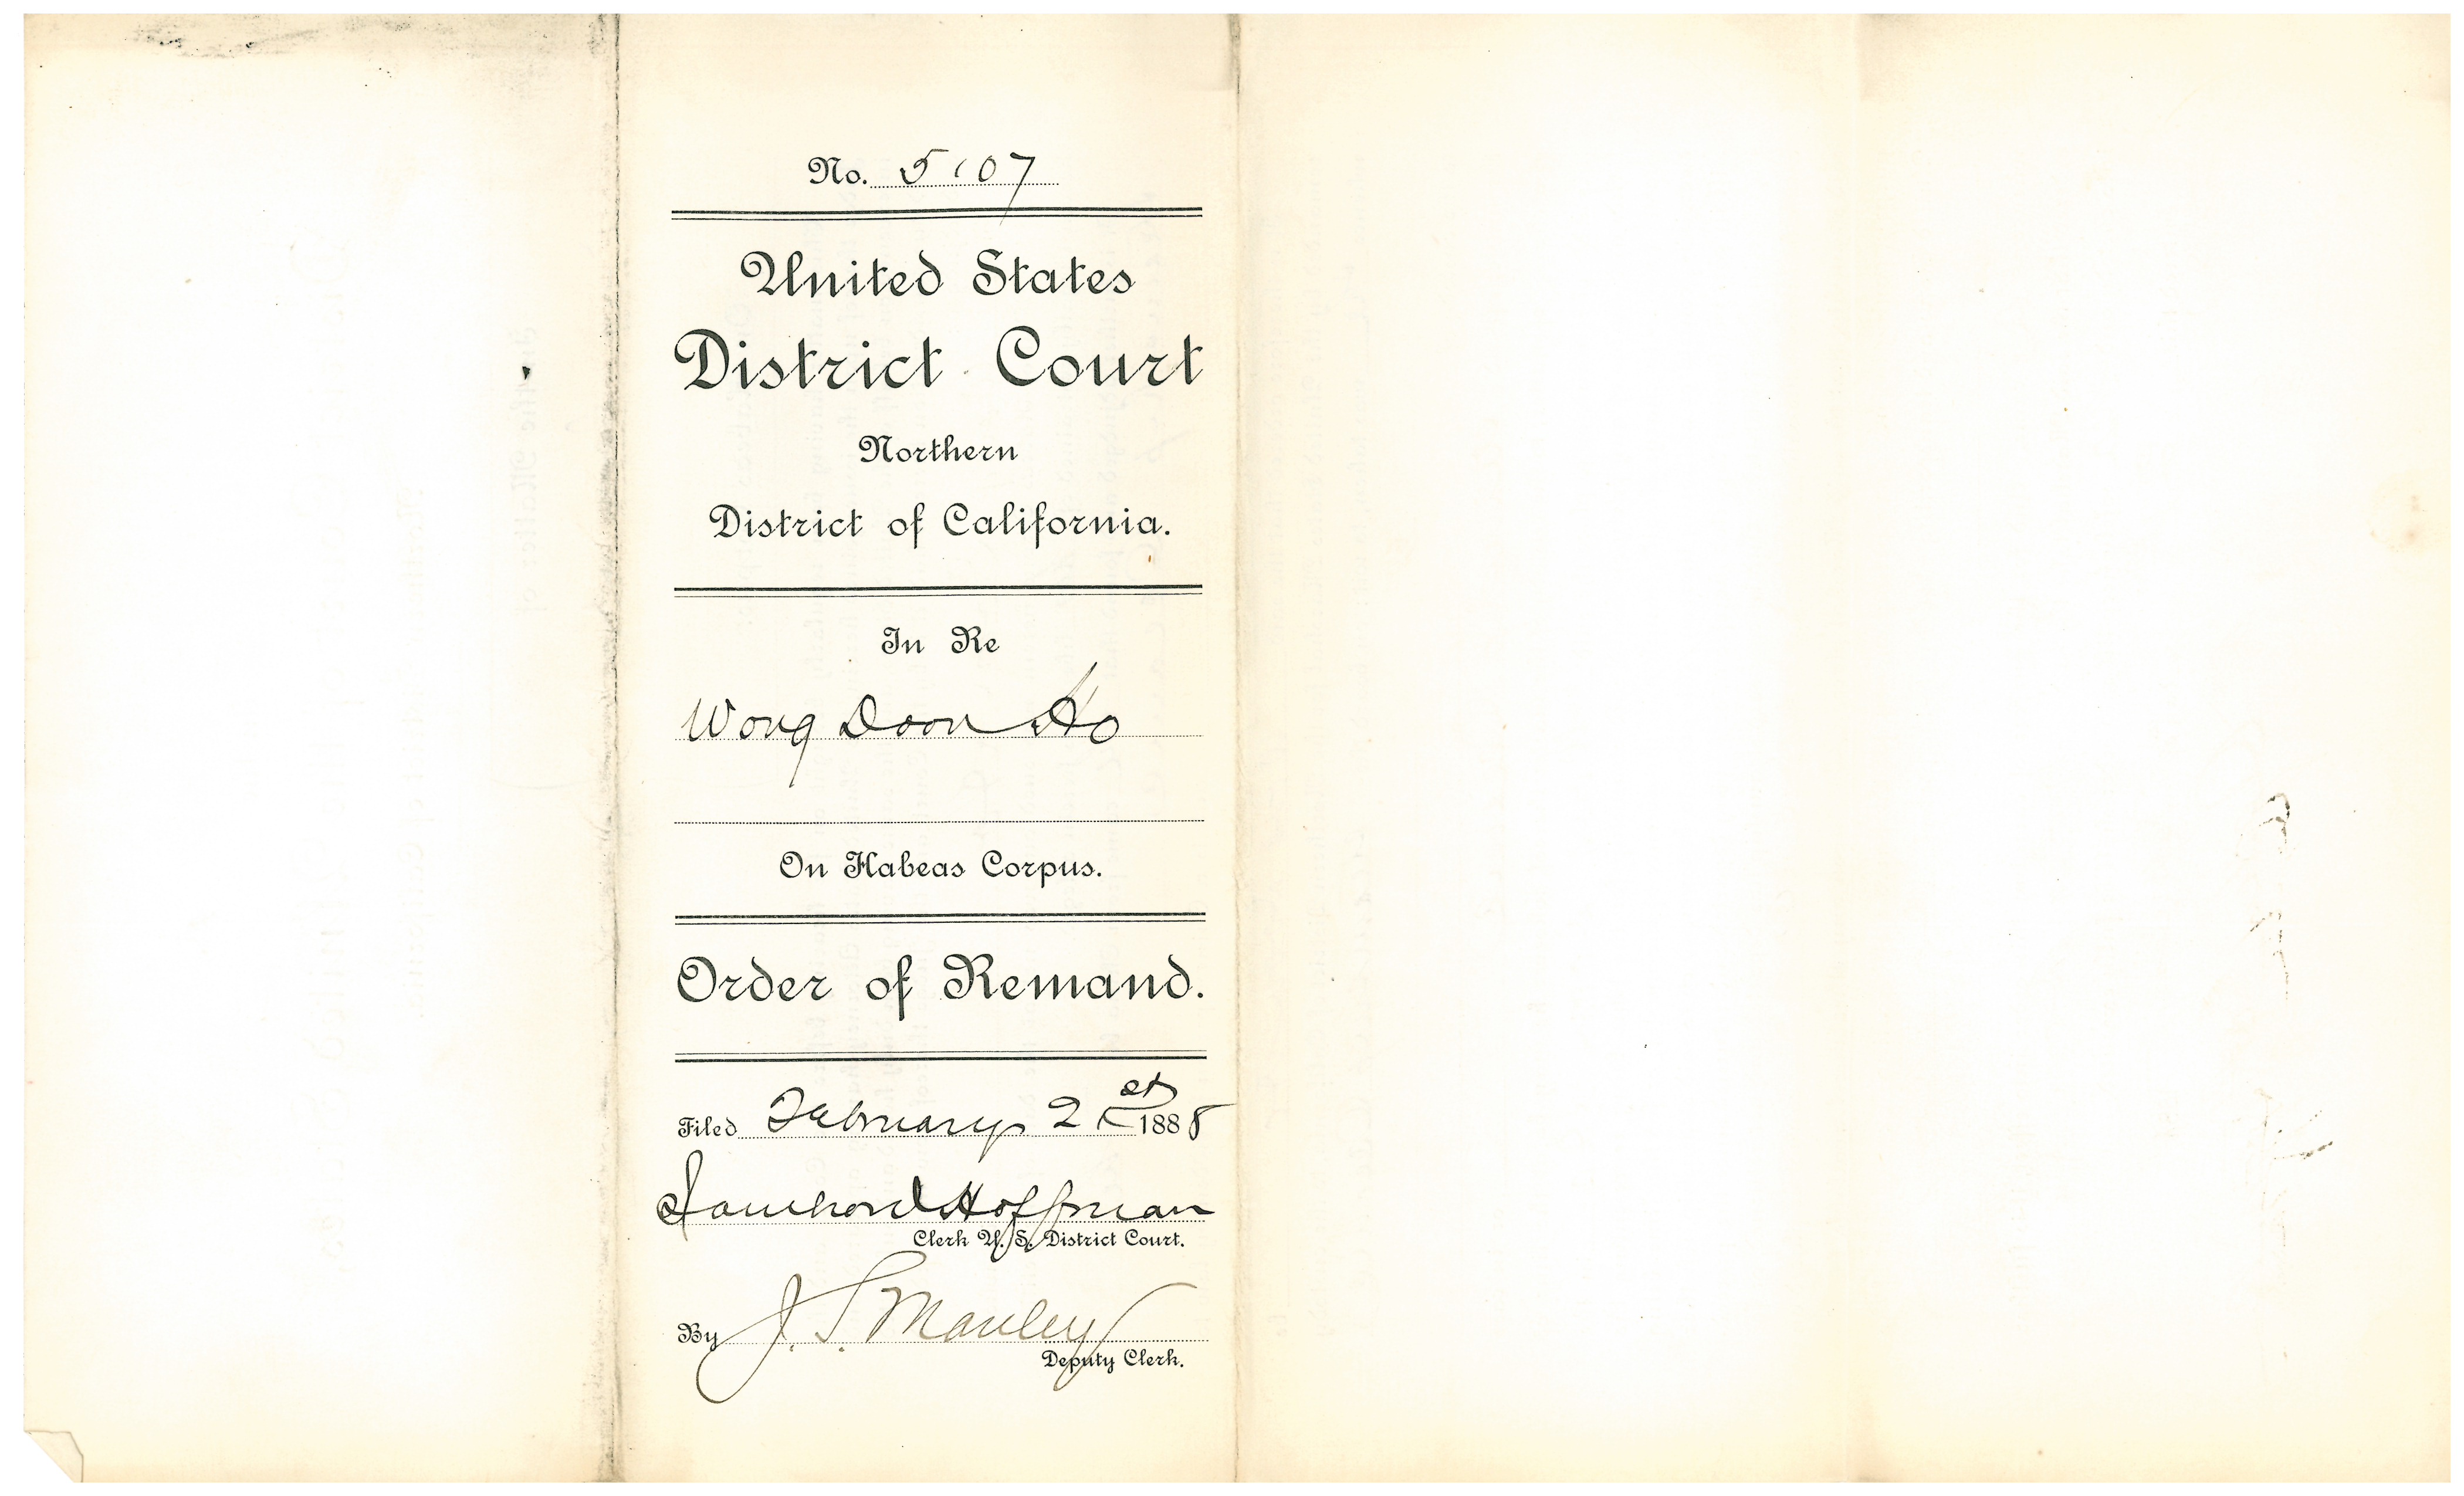 No. 5107
United States
District Court
Northern
District of California.
In Re
Wong Doon Ho
On Habeas Corpus.
Order of Remand.
Filed February 21st 1888
Southard Hoffman
Clerk U. S. District Court.
By J. S. Manley
Deputy Clerk.